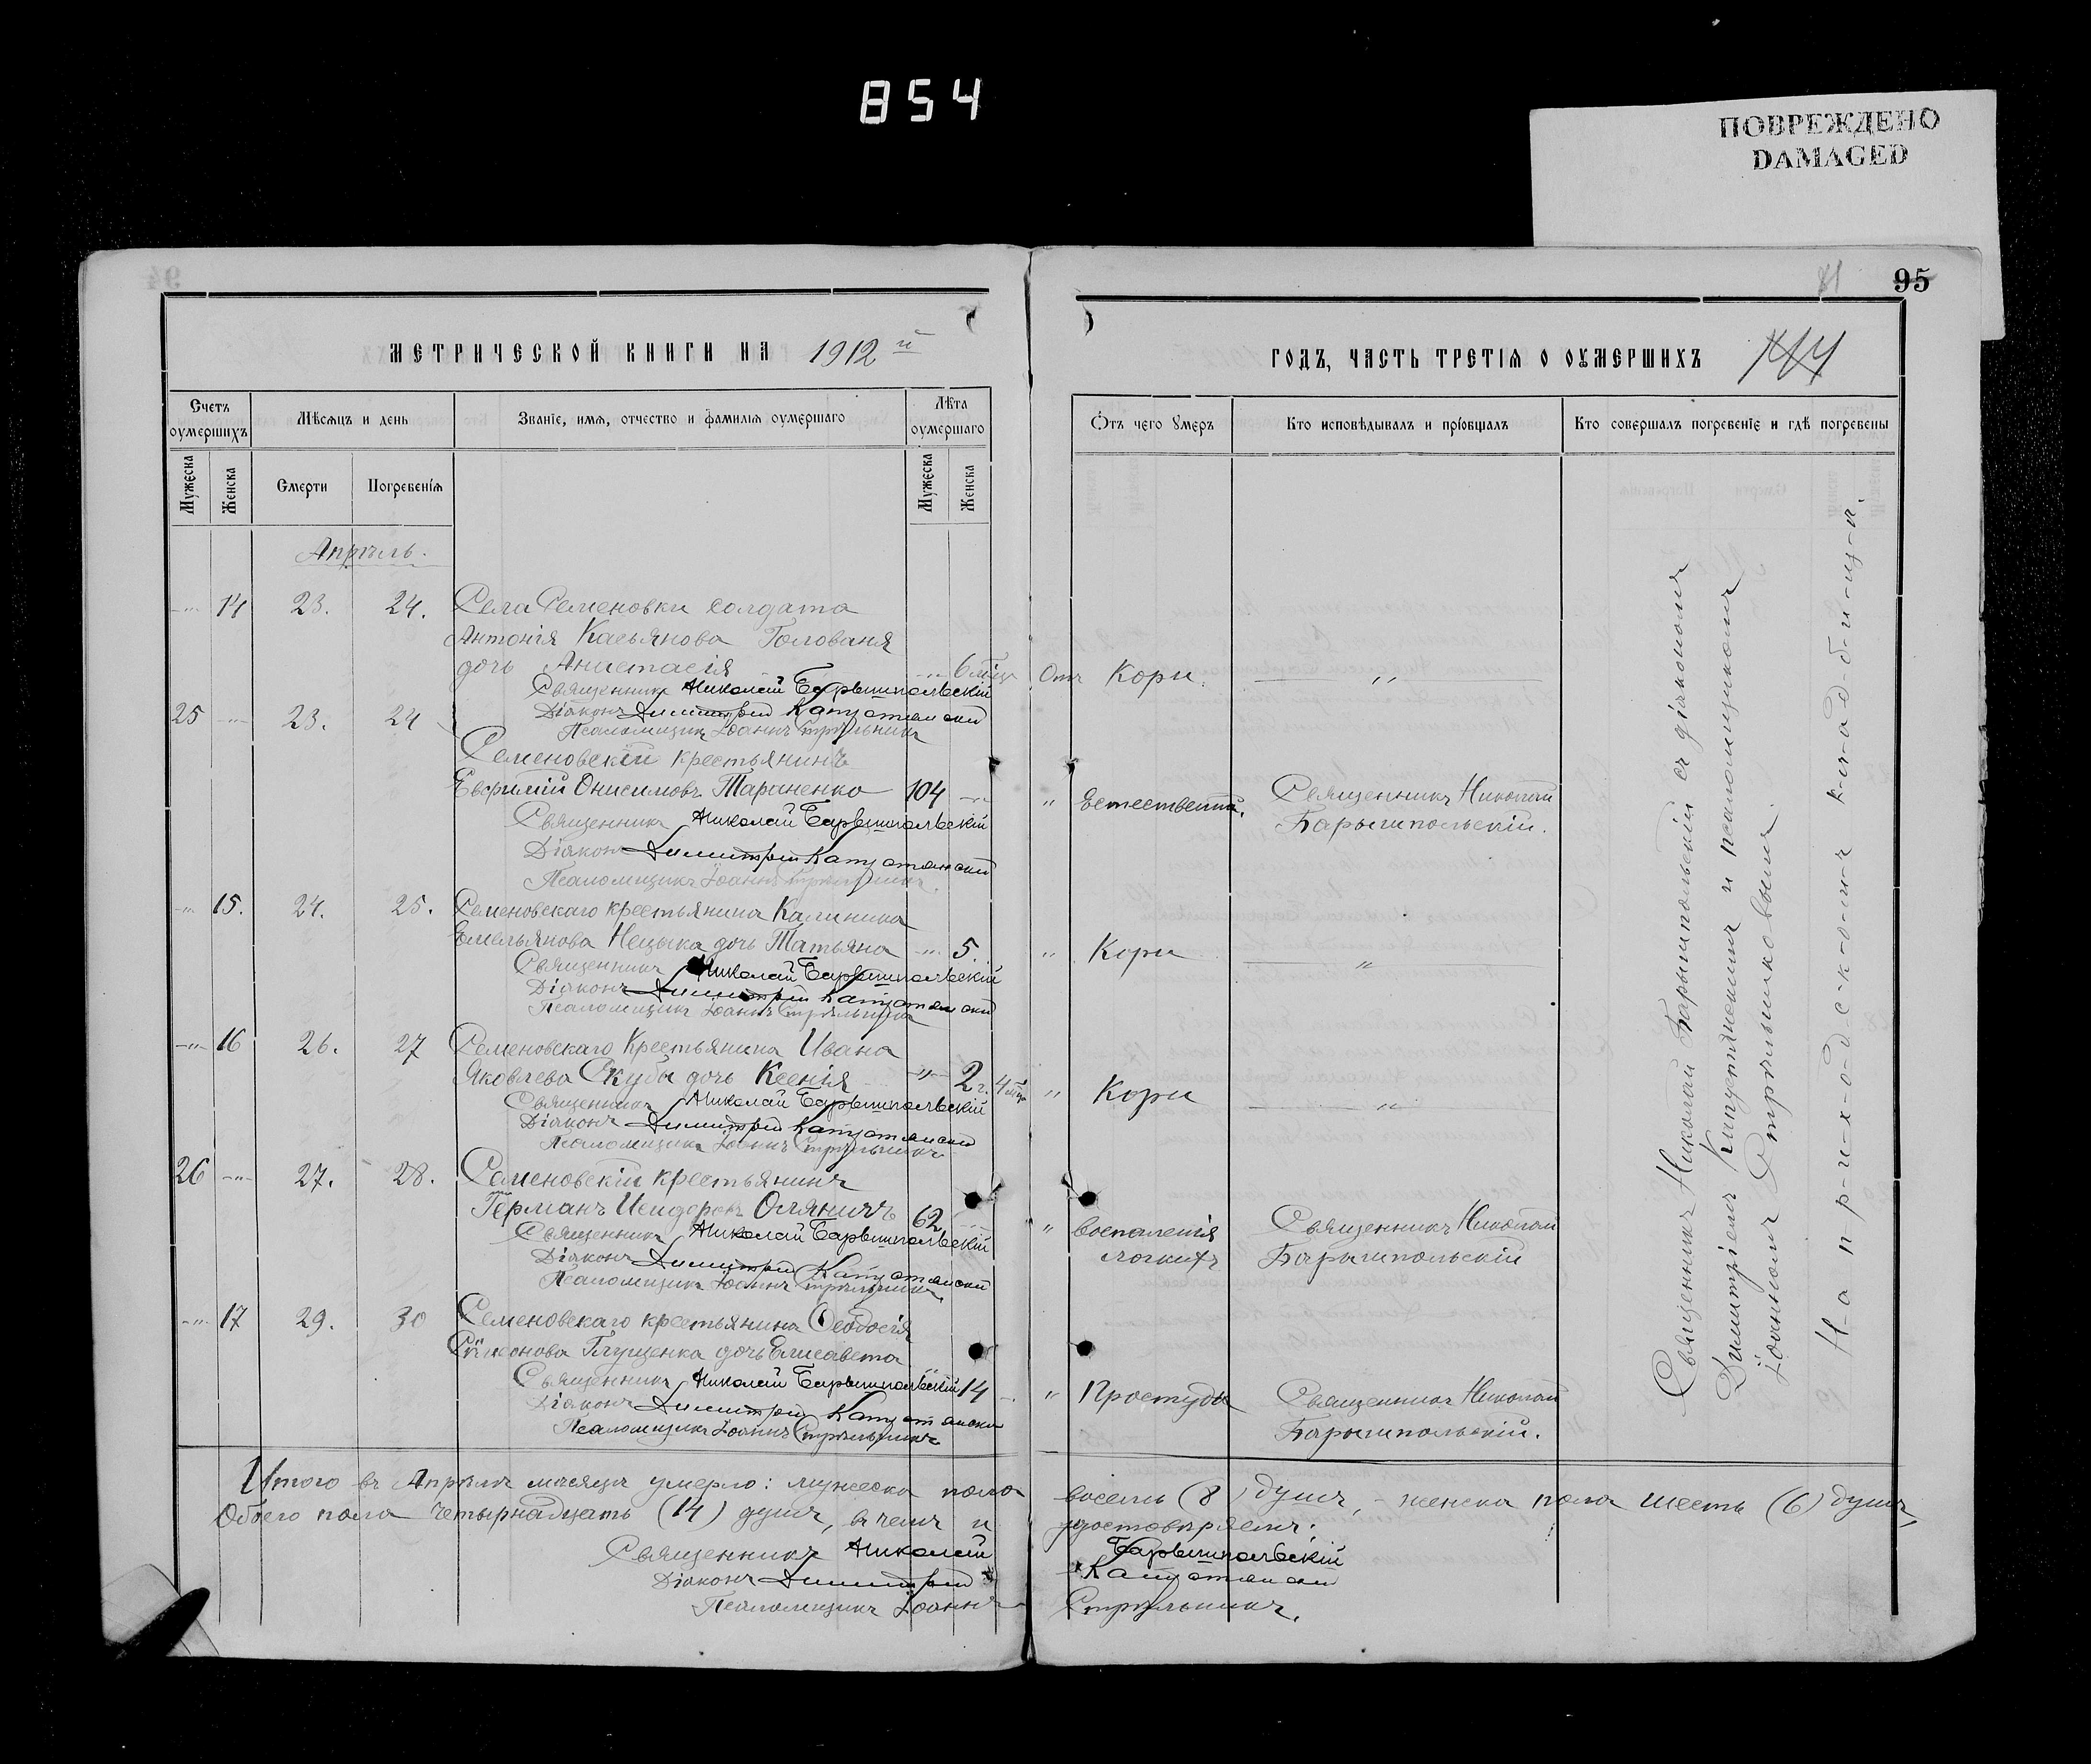 854
ПОВРЕЖДЕНО
DAMAGED
95
МЕТРИЧЕСКОЙ КНИГИ НА 1912 й
ГОДЪ, ЧАСТЬ ТРЕТІЯ О ОУМЕРШИХЪ
Счетъ оумершихъ
Мѣсяцъ и день
Званіе, имя, отчество и фамилія оумершаго
Лѣта оумершаго
Ѿтъ чего оумеръ
Кто исповѣдывалъ и пріобщалъ
Кто совершалъ погребеніе и гдѣ погребены
Мужеска
Женска
Смерти
Погребенія
Мужеска
Женска
Апрѣль.
-"- 14 23. 24. Села Семеновки солдата
Антонія Касьянова Голованя
дочь Анастасія -"- 6 мѣц Отъ Кори. "
Священникъ Николай Барышпольскій
Діаконъ Димитрій Капустянскій
Псаломщикъ Іоаннъ Стрѣльникъ
25 -"- 23. 24
Семеновскій крестьянинъ
Евфимій Онисимовъ Тараненко 104 -"- " Естественной. Священникъ Николай
Барышпольскій.
Священникъ Николай Барышпольскій
Діаконъ Димитрій Капустянскій
Псаломщикъ Іоаннъ Стрѣльникъ.
-"- 15. 24. 25. Семеновскаго крестьянина Калиника
Емельянова Нецыка дочь Татьяна -"- 5. " Кори "
Священникъ Николай Барышпольскій
Діаконъ Димитрій Капустянскій
Псаломщикъ Іоаннъ Стрѣльникъ
-"- 16 26. 27 Семеновскаго Крестьянина Ивана
Яковлева Скубы дочь Ксенія -"- 2 г. 4 мѣц " Кори "
Священникъ Николай Барышпольскій
Діаконъ Димитрій Капустянскій
Псаломщикъ Іоаннъ Стрѣльникъ
26 -"- 27. 28. Семеновскій крестьянинъ
Германъ Исидоровъ Оляничъ 62 " воспаленія Священникъ Николай
легкихъ Барышпольскій
Священникъ Николай Барышпольскій
Діаконъ Димитрій Капустянскій
Псаломщикъ Іоаннъ Стрѣльникъ
-"- 17 29. 30 Семеновскаго крестьянина Ѳеодосія
Симеонова Глущенка дочь Елисавета
Священникъ Николай Барышпольскій 14 " Простуды Священникъ Николай
Барышпольскій.
Діаконъ Димитрій Капустянскій
Псаломщикъ Іоаннъ Стрѣльникъ
Священникъ Николай Барышпольскій съ діакономъ
Димитріемъ Капустянскимъ и псаломщикомъ
Іоанномъ Стрѣльниковымъ.
Н-а п-р-и-х-о-д-с-к-о-м-ъ к-л-а-д-б-и-щ-ѣ.
Итого въ Апрѣлѣ мѣсяцѣ умерло: мужеска пола восемь (8) душъ, - женска пола шесть (6) душъ,
Обоего пола четырнадцать (14) душъ, въ чемъ и удостовѣряемъ:
Священникъ Николай Барышпольскій
Діаконъ Димитрій Капустянскій
Псаломщикъ Іоаннъ Стрѣльникъ.